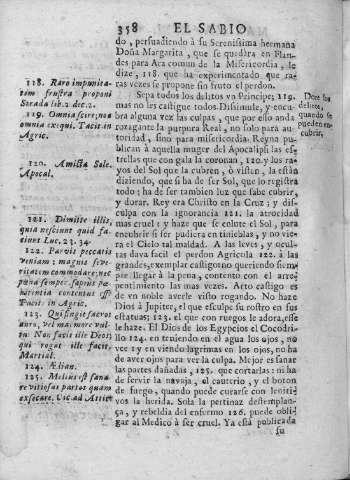 358 EL SABIO
do, persuadiendo à su Serenissima hermana
Doña Margarita, que se quedàra en Flan-
des para Ara comun de la Misericordia, le
dize, 118. que ha experimentado que ra-
ras vezes se propone sin fruto el perdon.
Sepa todos los delitos vn Principe; 119.
mas no les castigue todos. Dissimule, y encu-
bra alguna vez las culpas, que por esso anda
rozagante la purpura Real, no solo para au-
toridad, sino para misericordia. Reyna pu-
blican à aquella muger del Apocalipsi las es-
trellas que con gala la coronan, 120. y los ra-
yos del Sol que la cubren, ò visten, la estàn
diziendo, que si ha de ser Sol, que lo registra
todo; ha de ser tambien luz que sabe cubrir,
y dorar. Rey era Christo en la Cruz; y dis-
culpa con la ignorancia 121. la atrocidad
mas cruel: y haze que se enlute el Sol, para
encubrir si ser pudiera en tinieblas, y no vie-
ra el Cielo tal maldad. A las leves, y ocul-
tas dava facil el perdon Agricula 122. à las
grandes, exemplar castigo: no queriendo siem-
pre llegar à la pena, contento con el arre-
pentimiento las mas vezes. Arto castigo es
de vn noble averle visto rogando. No haze
Dios à Jupiter, el que esculpe su rostro en sus
estatuas; 123. el que con ruegos le adora, esse
le haze. El Dios de los Egypcios el Cocodri-
lo 124. en teniendo en el agua los ojos, no
vee: y en viendo lagrimas en los ojos, no ha
de aver ojos para ver la culpa. Mejor es sanar
las partes dañadas, 125. que cortarlas: ni ha
de servir la navaja, el cauterio, y el boton
de fuego, quando puede curarse con leniti-
vos la herida. Sola la pertinaz destemplan-
ça, y rebeldia del enfermo 126. puede obli-
gar al Medico à ser cruel. Ya està publicada
su
118. Raro impunita-
tem frustra proponi
Strada lib. 2. dec. 2.
119. Omnia scire; non
omnia exequi. Tacit. in
Agric.
120. Amicta Sole.
Apocal.
121. Dimitte illis,
quia nesciunt quid fa-
ciunt Luc. 23. 34.
122. Parvis peccatis
veniam; magnis seve-
ritatem commodare; nec
pœna semper, sæpius pœ-
nitentia contentus esse
Tacit. in Agric.
123. Qui fingit sacros
auro, vel marmore vul-
tus. Non facit ille Deos;
qui rogat ille facit.
Martial.
124. Ælian.
125. Melius est sana-
re vitiosas partes quam
exsecare. Cic. ad Attic.
Dore los
delitos,
quando se
pueden en-
cubrir.